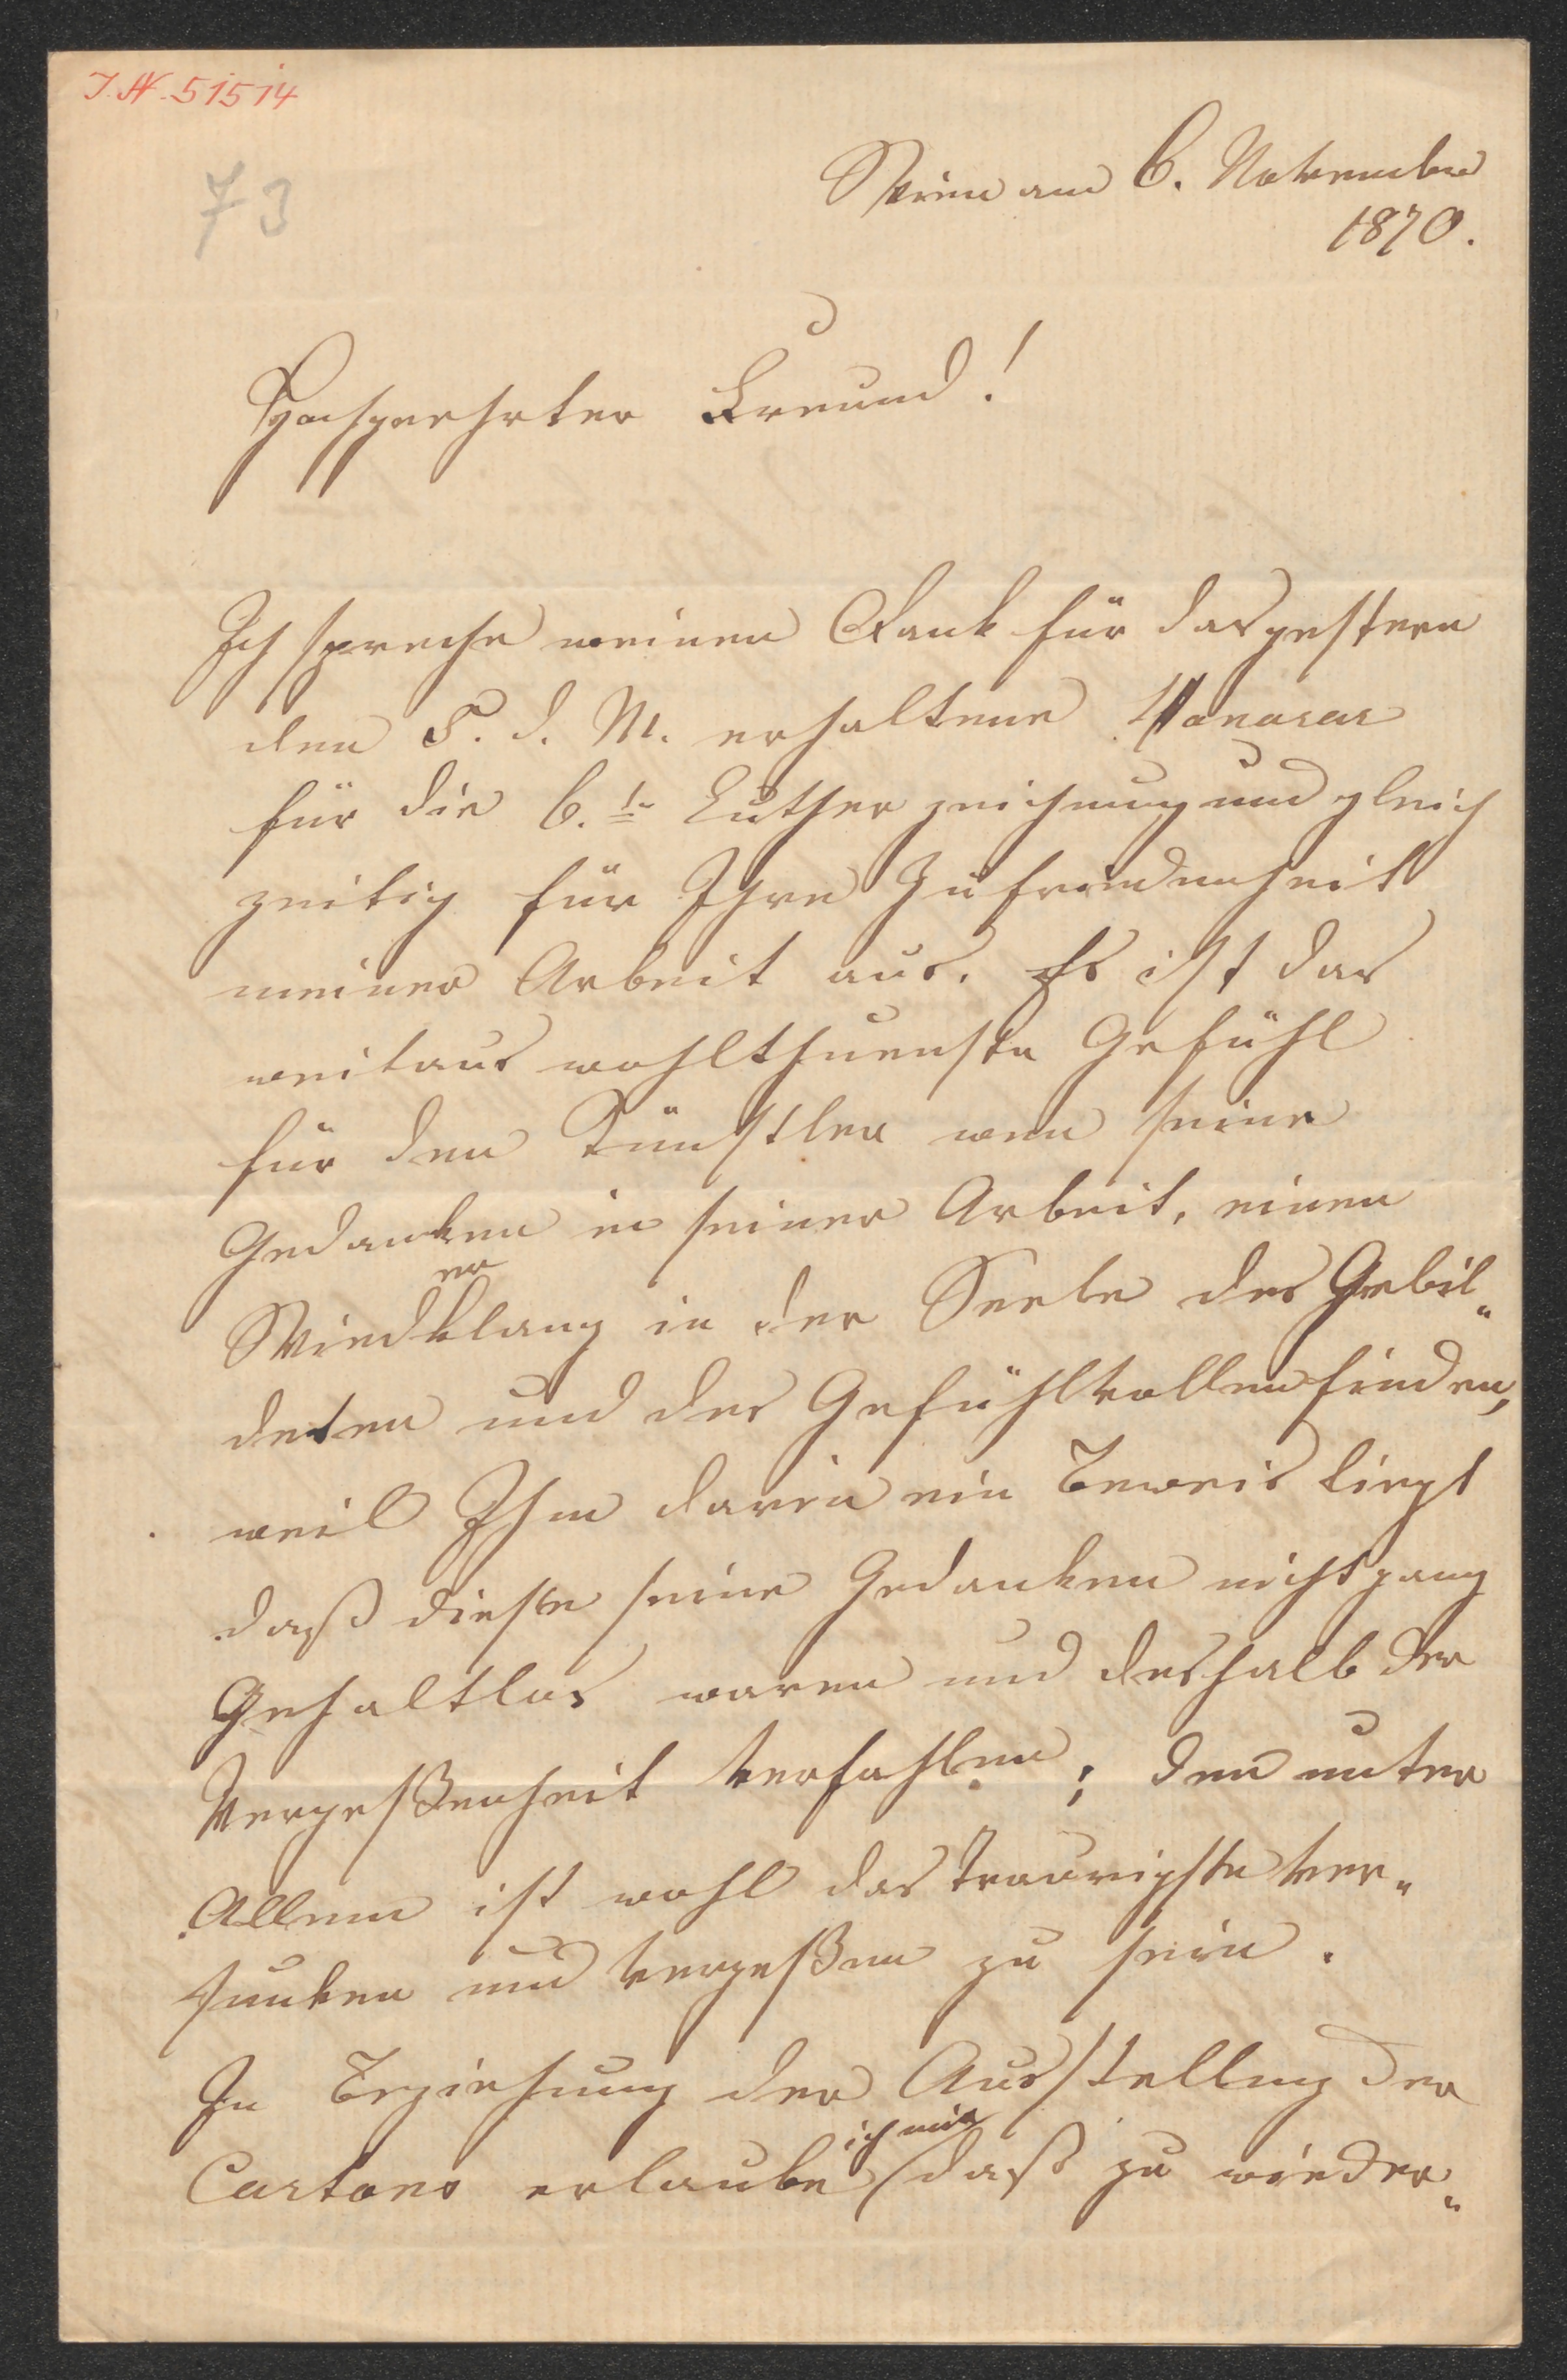 I.N. 51514
73
Wien am 6. November
1870.
Hochgeehrter Freund!
Ich spreche meinen Dank für das gestern
den 5. d. M. erhaltene Honorar
für die 6.te Lutherzeichnung und gleich
zeitig für Ihre Zufriedenheit
meiner Arbeit aus. Es ist das
weitaus wohlthuenste Gefühl
für den Künstler wen seine
Gedanken in seiner Arbeit, einen
Wiederklang in der Seele des Gebil„
deten und des Gefühlvollen finden,
weil Ihm darin ein Beweis liegt
daß diese seine Gedanken nicht ganz
Gehaltlos waren und deshalb der
Vergeßenheit verfahlen; den unter
Allem ist wohl das traurigste ver„
sunken und vergeßen zu sein.
In Beziehung der Ausstellung der
Cartons erlaube ich mir daß zu wieder„